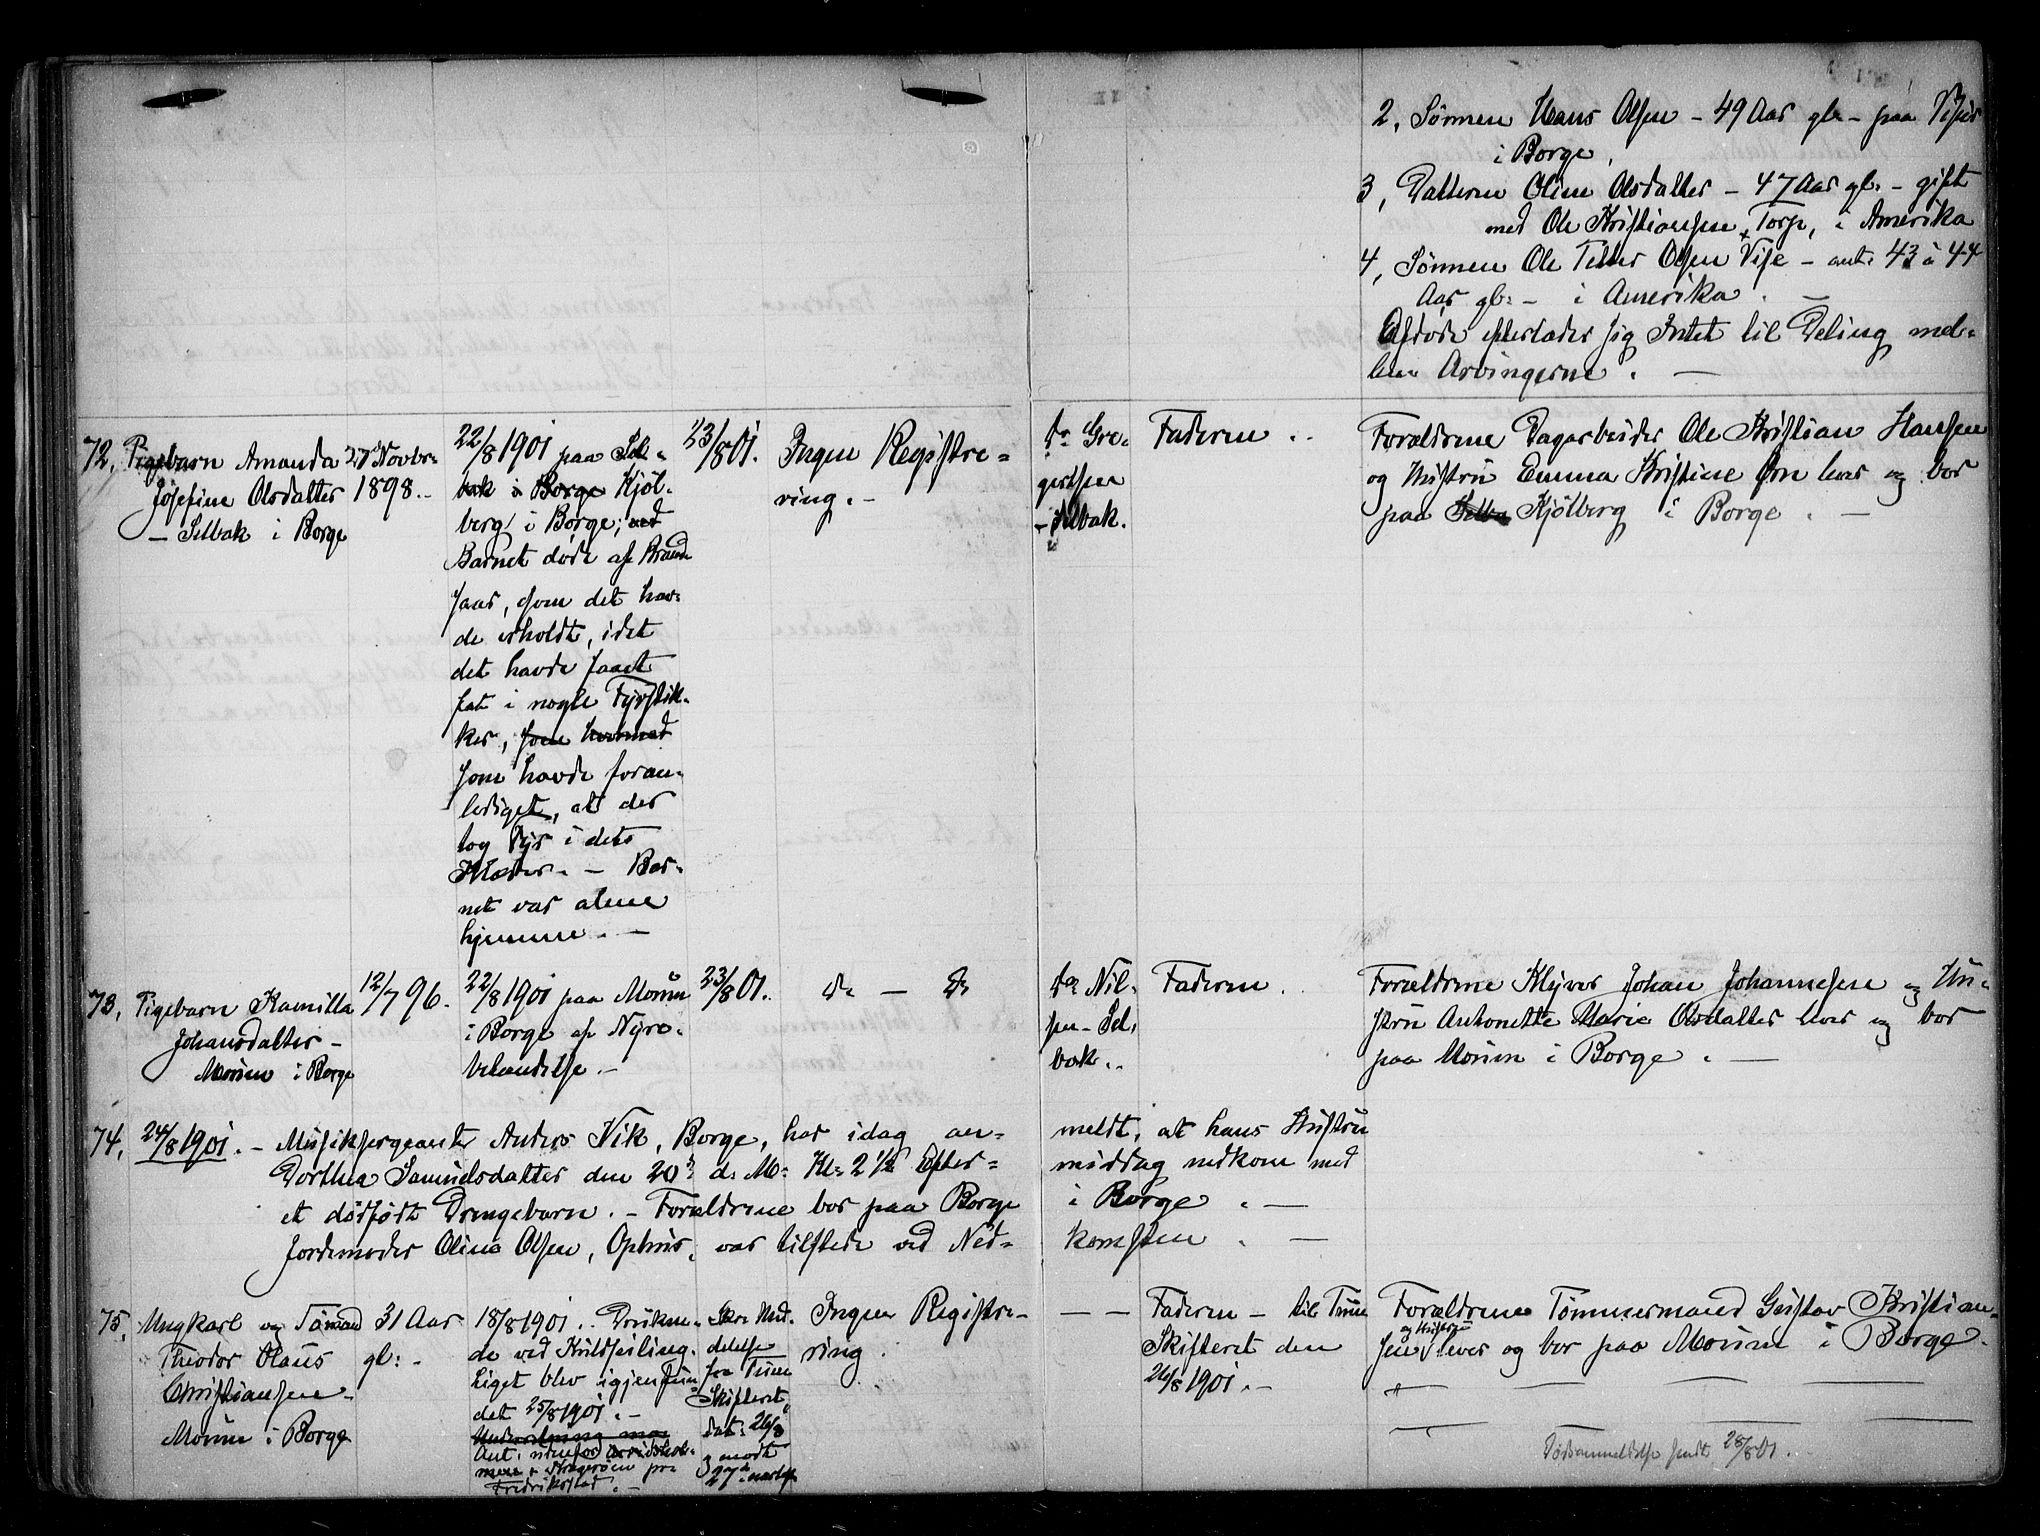 2, Sønnen Hans Olsen – 49 Aar gl. – paa Visür
i Borge.
3, Datteren Oline Olsdatter – 47 Aar gl. – gift
med Ole Kristiansen, Torp, i Amerika
4, Sønnen Ole Petter Olsen Vise – ant. 43 à 44
Aar gl: – i Amerika. –
Afdøde efterlader sig Intet til Deling mel=
lem Arvingerne. –
72, Pigebarn Amanda
Josefine Olsdatter
– Selbak i Borge
27 Novbr.
1898. –
22/8 1901 paa Sel=
bak i Borge Kjöl=
berg i Borge; ved
Barnet døde af Brand
saar, som det hav=
de erholdt, idet
det havde faaet
fat i nogle Fyrstik=
ker, som hvormed
som havde foran=
lediget, at der
tog Fyr i dets
Klæder. – Bar=
net var alene
hjemme. –
23/8 01.
Ingen Registre=
ring. –
do Gre=
gersen
– Selbak.
Faderen.
Forældrene Dagarbeider Ole Kristian Hansen
og Hustru Emma Kristine Örn lever og bor
paa Selba Kjölberg i Borge. –
73, Pigebarn Kamilla
Johansdatter –
Moum i Borge
12/7 96.
22/8 1901 paa Moum
i Borge af Nyre=
betændelse. –
23/8 01.
do — do
do Nil=
sen – Sel=
bak.
Faderen.
Forældrene Skiver Johan Johannesen og Hu=
stru Antonette Marie Olsdatter lever og bor
paa Moum i Borge. –
74, 24/8 1901. – Musiksergeanter Anders Vik, Borge, har idag an=
meldt, at hans Hustru
Dorthea Samuelsdatter den 20de d. M. Kl. 2 1/2 Efter=
middag nedkom med
et dødfødt Drengebarn. – Forældrene bor paa Borge
i Borge. –
Jordemoder Oline Olsen, Ophus, var tilstede ved Ned=
komsten. –
75, Ungkarl og Sømand
Theodor Olaus
Christiansen –
Moum i Borge
31 Aar
gl: –
18/8 1901. Drukne=
de ved Kuldseiling.
Liget blev igjenfun=
det 25/8 1901. –
Ant. udenfor
Fredrikstad. –
Skr. Med=
delelse
fra Tune
Skifteret
dat: 26/8
modt
27de
Ingen Registre=
ring.
– –
Faderen – til Tune
Skifteret den
26/8 1901. –
Forældrene Tømmermand Gustav Kristian=
sen og Hustru lever og bor paa Moum i Borge.
Dødsanmeldelse sendt 28/8 01.